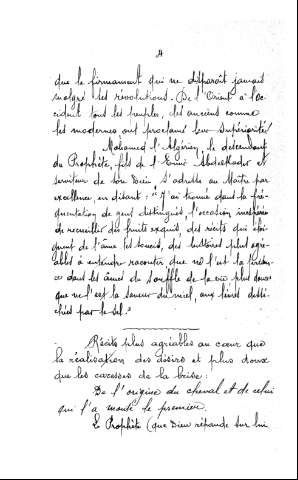 4
que le firmament qui ne disparaît jamais
malgré les révolutions. De l'Orient à l'Oc-
cident tous les peuples, les anciens comme
les modernes ont proclamé leur supériorité.
Mohamed l'Algérien, le descendant
du Prophète, fils de l'Emir Abdelkader et
serviteur de son Dieu s'adresse au Maître par
excellence, en disant : "J'ai trouvé dans la fré-
quentation de gens distingués l'occasion
de recueillir des fruits exquis, des récits qui éloi-
gnent de l'âme les soucis, des histoires plus agré-
ables à entendre raconter que ne l'est la
dans les âmes du souffle de la vie plus doux
que ne l'est la saveur du miel, aux lèvres dessé-
chées par le sel."
Récits plus agréables au cœur que
la réalisation des désirs et plus doux
que les caresses de la brise :
De l'origine du cheval et de celui
qui l'a monté le premier.
Le Prophète (que Dieu répande sur lui